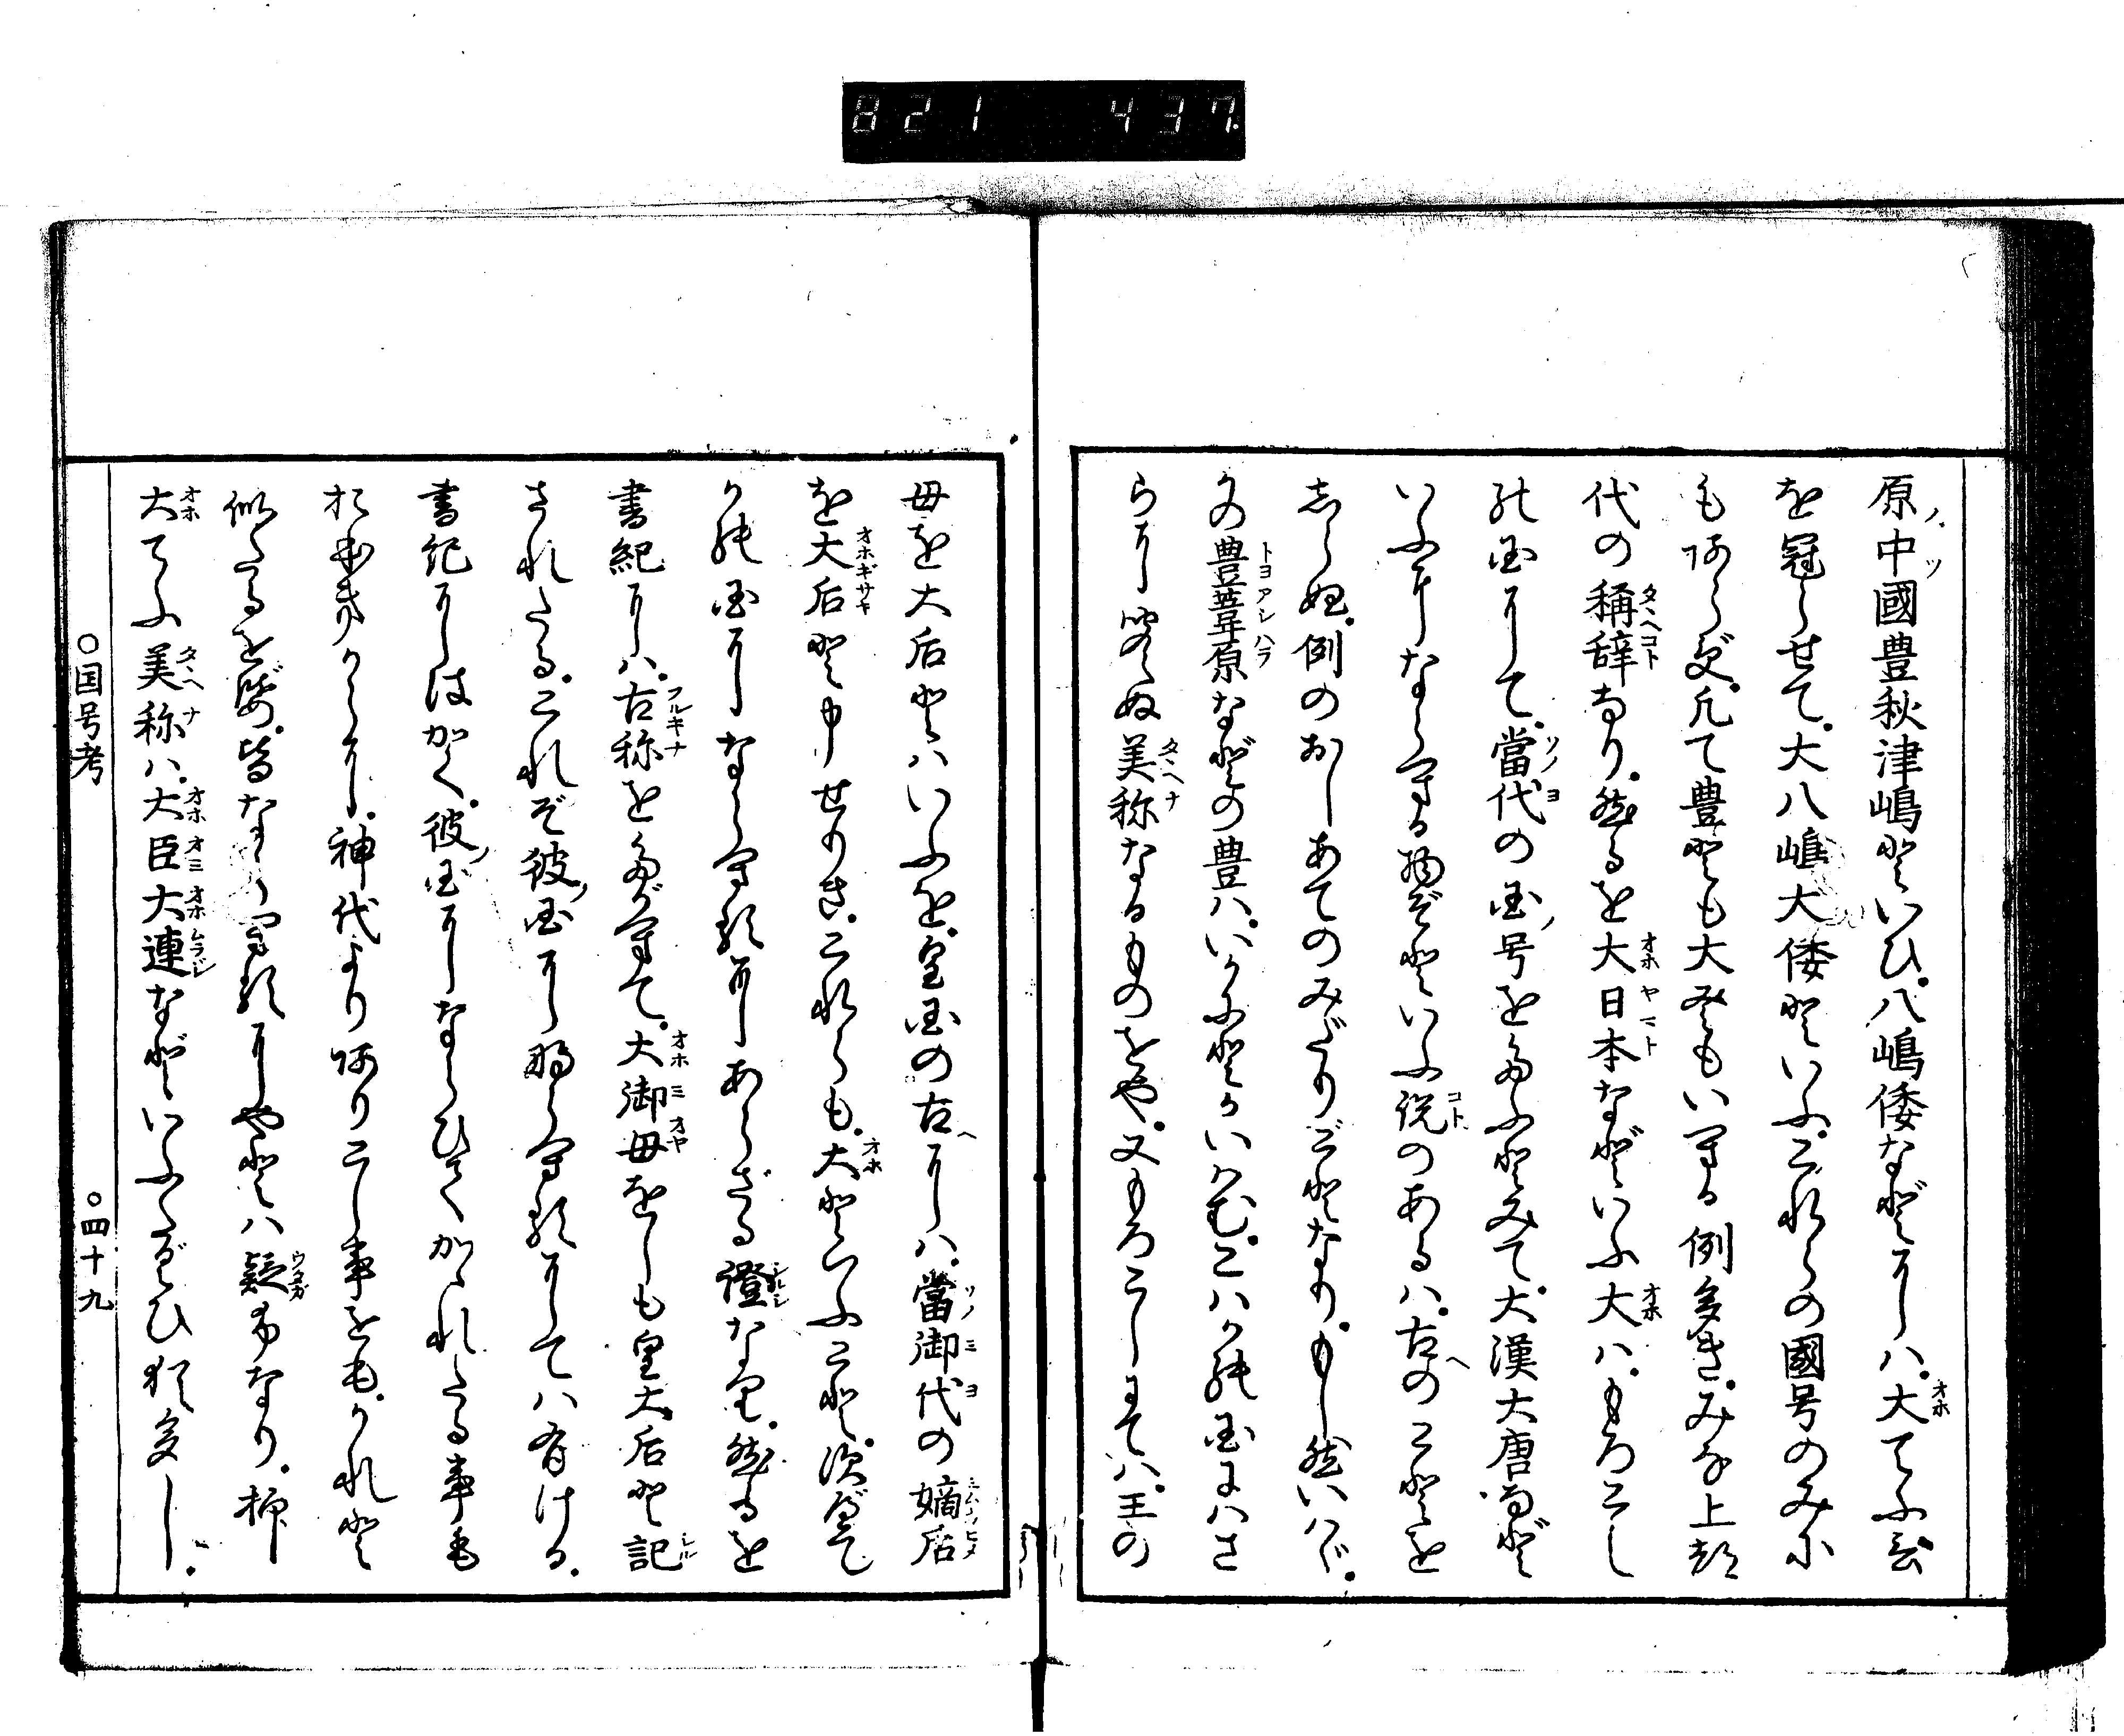 821 437
原ノ中ツ國豊秋津嶋といひ。八嶋倭などにハ。大てふ言
を冠らせて。大八嶋大倭といふ。これらの國号のみに
もあらず。凡て豊とも大ともいへる例多き。みな上
代の稱辞なり。然るを大日本などいふ大ハ。もろこし
の国にして。當代の国ノ号をたふとみて。大漢大唐など
いふにならへる物ぞといふ説のあるハ。古のことを
しらぬ。例のおしあてのみだりごとなり。もし然いはゞ。
かの豊葦原などの豊ハ。いかにとかいはむ。こハかの国にハさ
らに聞えぬ美称なるものをや。又もろこしにてハ。王の
母を大后とハいふを。皇国の古にハ。當御代の嫡后
を大后と申せりき。これらも。大といふこと。すべて
かの国にならへるにあらざる證なり。然るを
書紀にハ。古称をたがへて。大御母をしも皇大后と記
されたる。これぞ彼ノ国にならへるにしてハ有ける。
書紀にはかく。彼ノ国にならひてかゝれたる事も
おほきからに。神代よりありこし事をも。かれと
似たるをば。皆ならへるにやとハ疑ふなり。抑
大てふ美称ハ。大臣大連などいふたぐひ猶多し。
○国号考 ○四十九